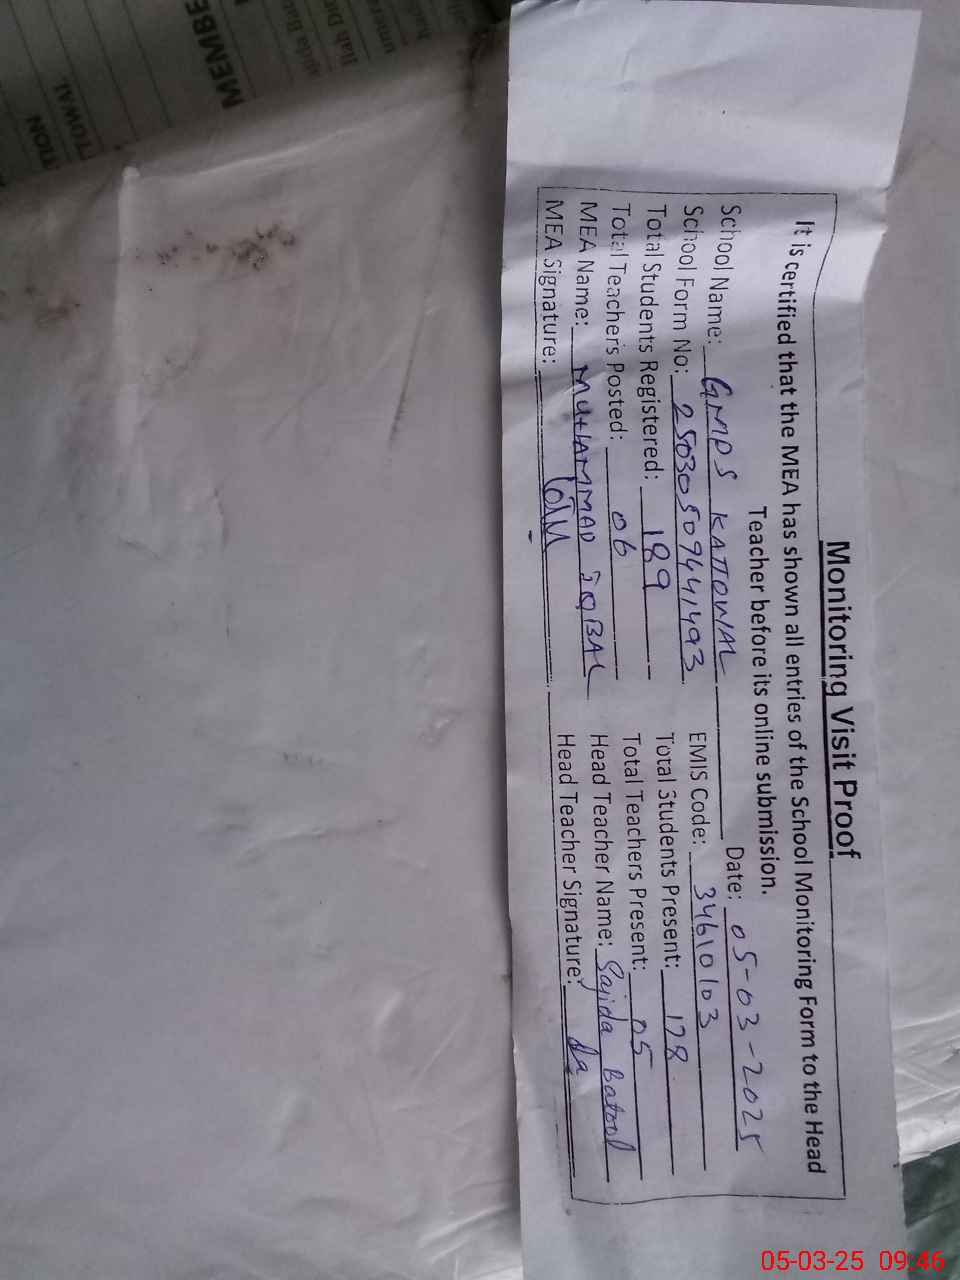 Monitoring Visit Proof
It is certified that the MEA has shown all entries of the School Monitoring Form to the Head
Teacher before its online submission.
School Name: GMPS KATTOWAL Date: 05-03-2025
School Form No: 25030509441493 EMIS Code: 34610103
Total Students Registered: 189 Total Students Present: 178
Total Teachers Posted: 06 Total Teachers Present: 05
MEA Name: MUHAMMAD IQBAL Head Teacher Name: Sajida Batool
MEA Signature: Head Teacher Signature:
MEMBE
TION
TTOWAL
05-03-25 09:46